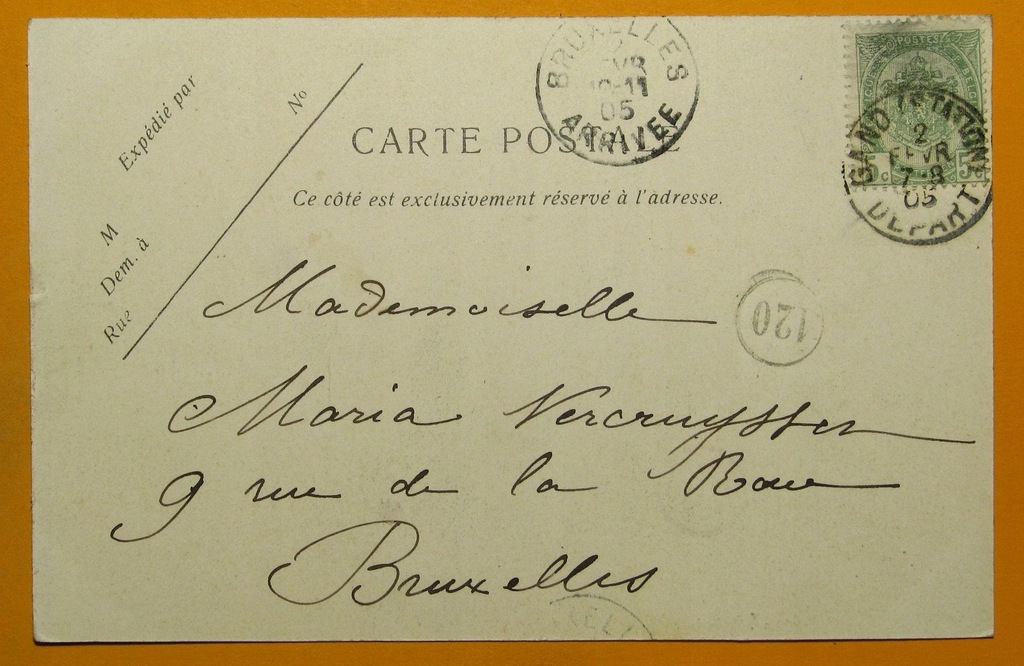 Expédié par
No
M
Dem. à
Rue
CARTE POSTALE
Ce côté est exclusivement réservé à l'adresse.
BRUXELLES
10-11
05
ARRIVEE
POSTES
5c 5c
GAND (STATION)
2
FEVR
7-8
05
DEPART
120
Mademoiselle
Maria Vercruyssen
9 rue de la Roue
Bruxelles